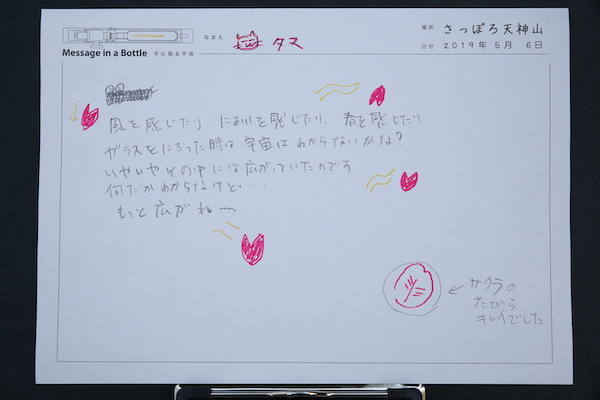 Message in a Bottle 手に取る宇宙
なまえ タヌ
場所 さっぽろ天神山
日付 2019年 5月 6日
風を感じたり、においを感じたり、春を感じたり、
ガラスをにぎった時は宇宙はわからないかな?
いやいやその中には広がっていたのです
何だかわからないけど...
もっと広がれ〜
← サクラの
花びら
キレイでした